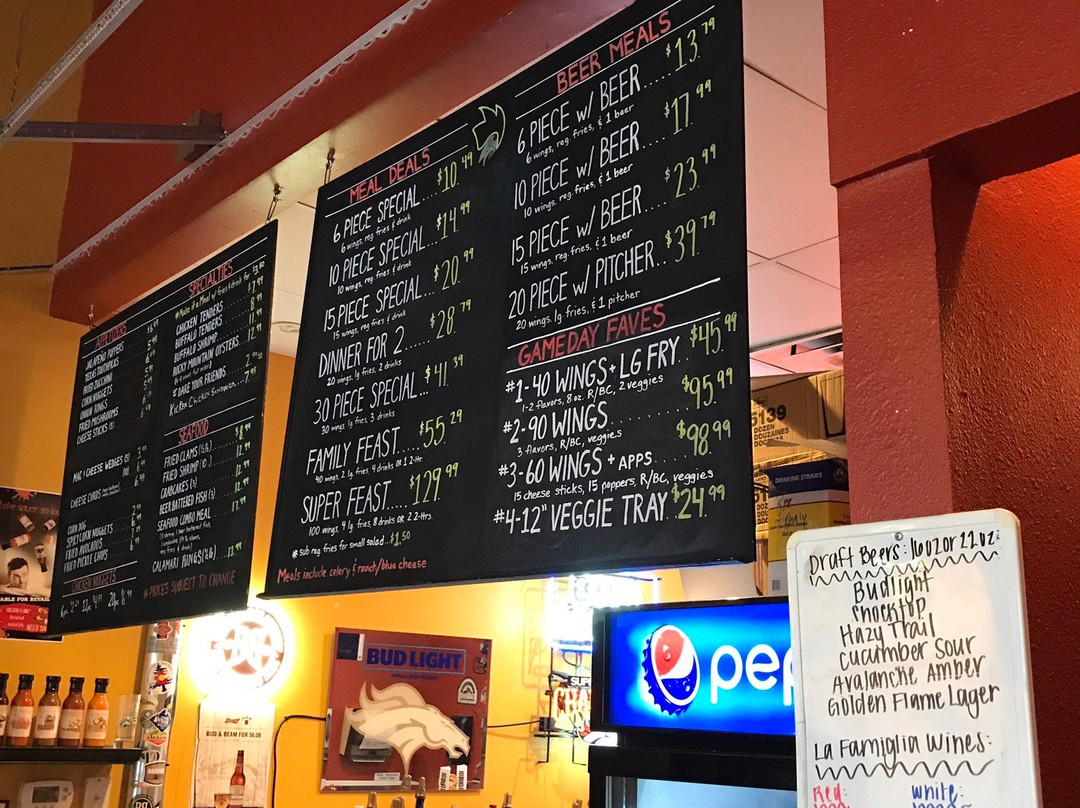 APPETIZERS
JALAPEÑO POPPERS
TEXAS TOOTHPICKS
FRIED ZUCCHINI
CORN NUGGETS
ONION RINGS
FRIED MUSHROOMS
CHEESE STICKS
MAC & CHEESE WEDGES
CHEESE CURDS
CORN DOG
SPICY CORN NUGGETS
FRIED AVOCADOS
FRIED PICKLE CHIPS
CHICKEN NUGGETS
SPECIALTIES
CHICKEN TENDERS
BUFFALO TENDERS
BUFFALO SHRIMP
ROCKY MOUNTAIN OYSTERS
*DARE YOUR FRIENDS
SEAFOOD
FRIED CLAMS
FRIED SHRIMP
CRABCAKES
BEER BATTERED FISH
SEAFOOD COMBO MEAL
CALAMARI RINGS
*PRICES SUBJECT TO CHANGE
MEAL DEALS
6 PIECE SPECIAL... $10.49
6 wings, reg fries & drink
10 PIECE SPECIAL... $14.99
10 wings, reg fries & drink
15 PIECE SPECIAL... $20.99
15 wings, reg fries & drink
DINNER FOR 2... $28.79
20 wings, lg fries, 2 drinks
30 PIECE SPECIAL... $41.39
30 wings, lg fries, 3 drinks
FAMILY FEAST... $55.29
40 wings, 2 lg fries, 4 drinks OR 1 2-ltr.
SUPER FEAST... $129.99
100 wings, 4 lg fries, 8 drinks OR 2 2-ltrs.
* sub reg fries for small salad... $1.50
Meals include celery & ranch/blue cheese
BEER MEALS
6 PIECE w/ BEER..... $13.79
6 wings, reg fries, & 1 beer
10 PIECE w/ BEER... $17.99
10 wings, reg fries, & 1 beer
15 PIECE w/ BEER.... $23.99
15 wings, reg fries, & 1 beer
20 PIECE w/ PITCHER.. $39.79
20 wings, lg fries, & 1 pitcher
GAMEDAY FAVES
#1-40 WINGS + LG FRY. $45.99
1-2 flavors, 8 oz. R/BC, 2 veggies
#2-90 WINGS........ $95.99
3 flavors, R/BC, veggies
#3-60 WINGS + APPS.... $98.99
15 cheese sticks, 15 poppers, R/BC, veggies
#4-12" VEGGIE TRAY. $24.99
5139
DOZEN
DOUZAINES
DRINKING STRAWS
Draft Beers: 16oz or 22oz:
Budlight
Shocktop
Hazy Trail
Cucumber Sour
Avalanche Amber
Golden Flame Lager
La Famiglia Wines:
Red:
White:
BUD LIGHT
BUD & BEAM FOR $6.00
pep